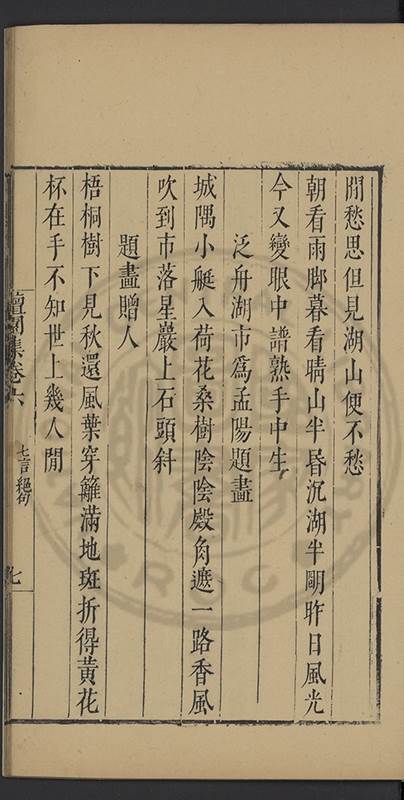 閒愁思但見湖山便不愁
朝看雨脚暮看晴山半昏沉湖半明昨日風光
今又變眼中譜熟手中生
泛舟湖市爲孟陽題畫
城隅小艇入荷花桑樹陰陰殿角遮一路香風
吹到市落星巖上石頭斜
題畫贈人
梧桐樹下見秋還風葉穿籬滿地斑折得黃花
杯在手不知世上幾人閒
檀園集卷六
七言絕句
七